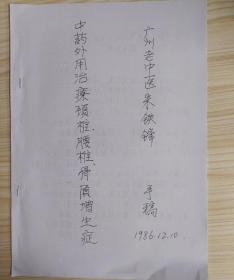 广州老中医朱铁锋 手稿
1986.12.10.
中药外用治療頸椎、腰椎、骨质增生症